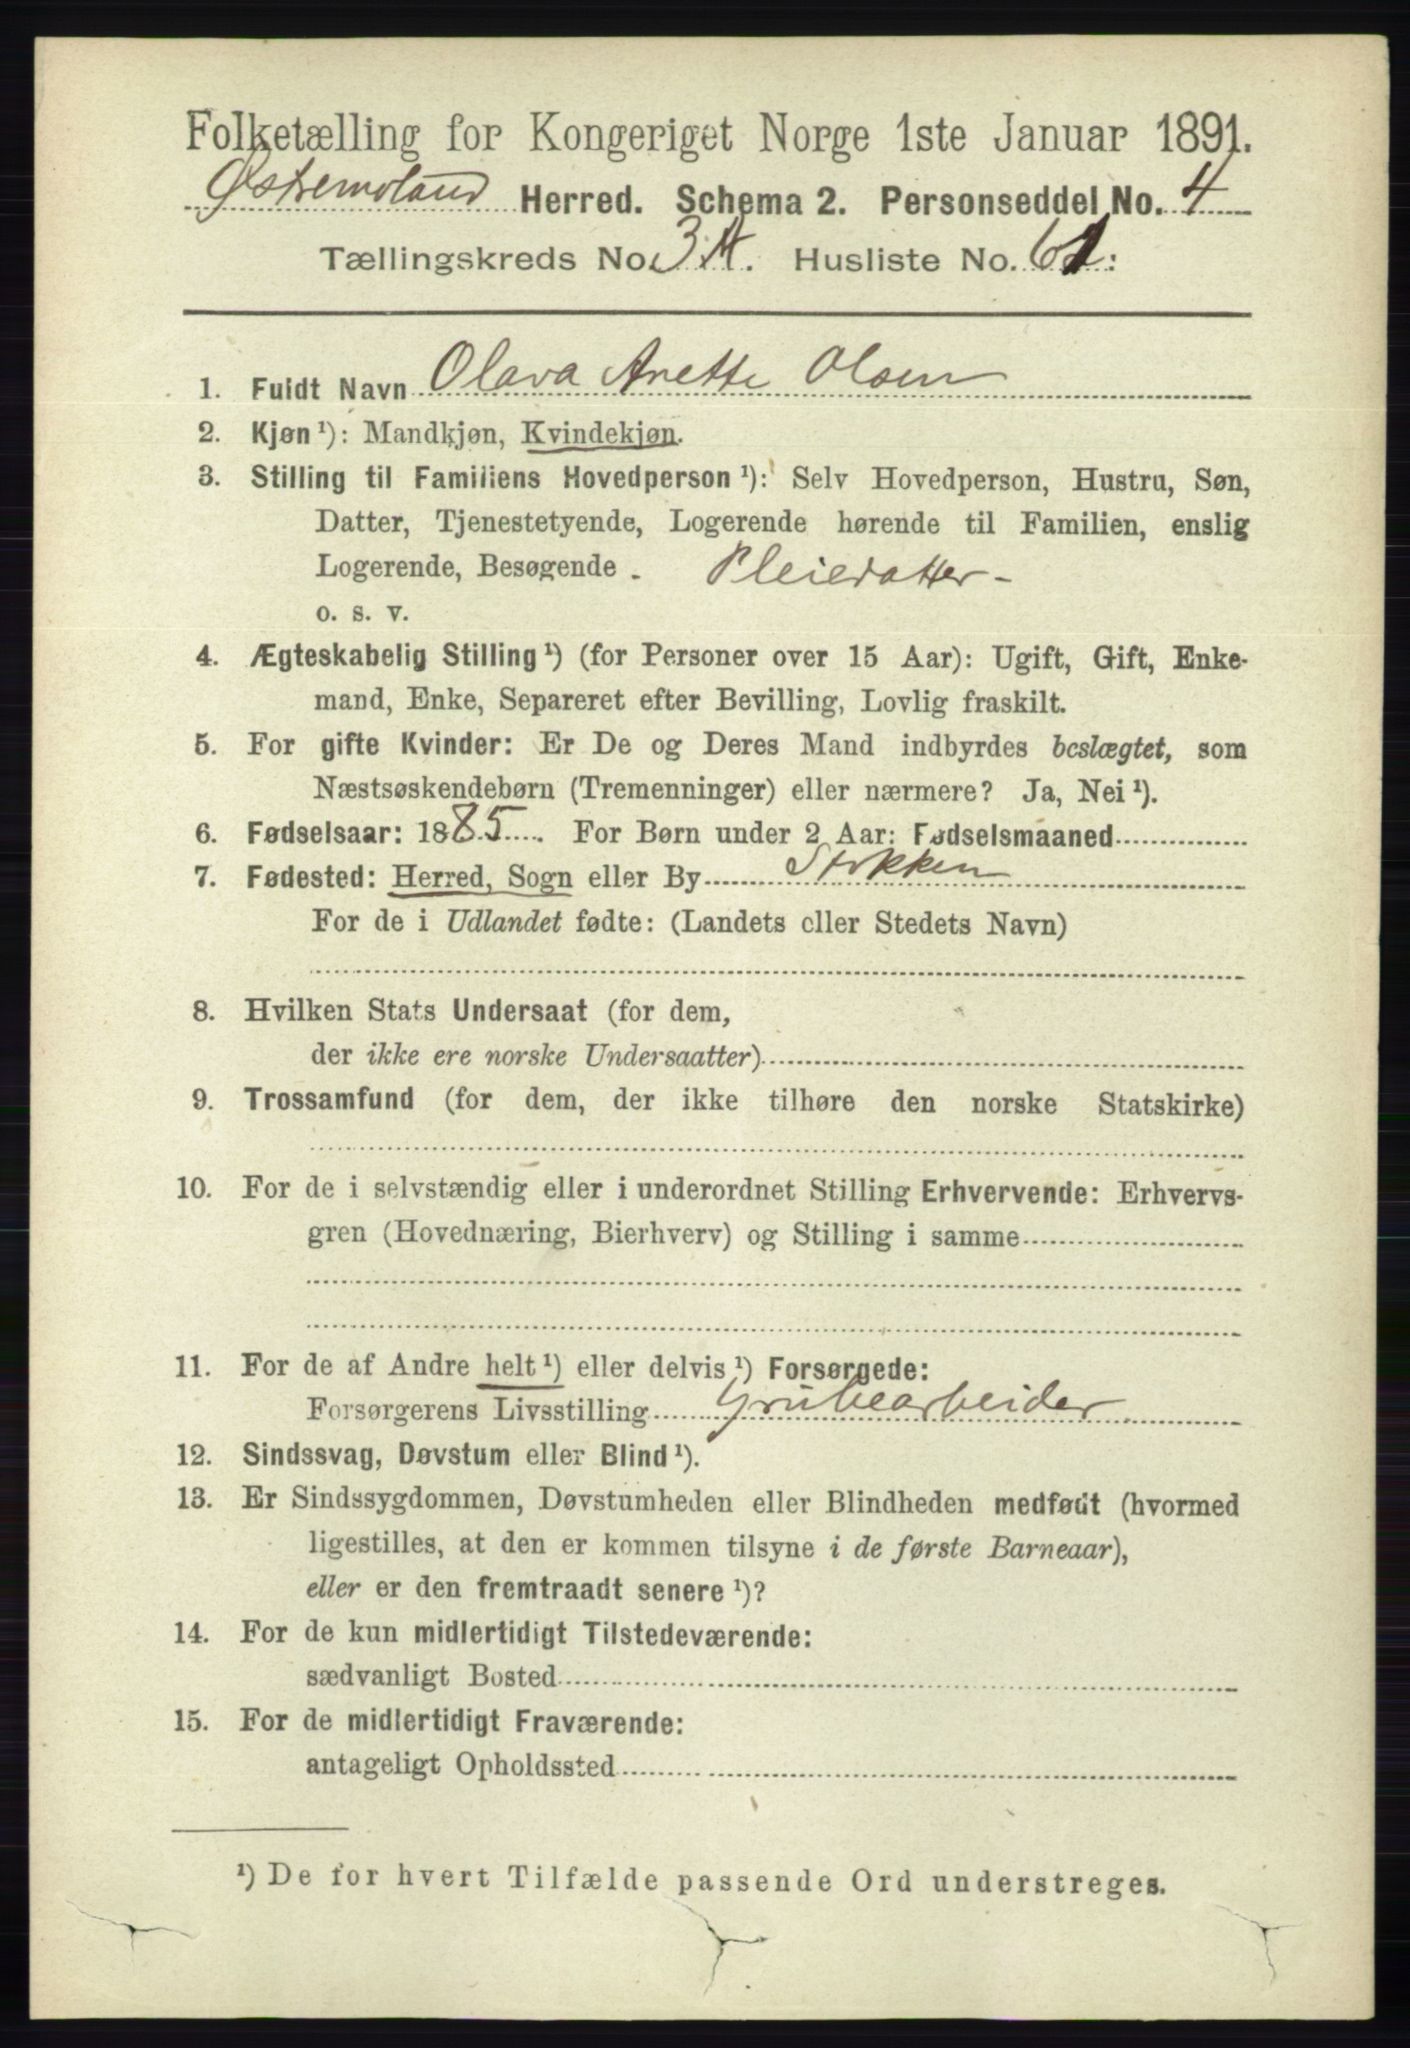 Folketælling for Kongeriget Norge 1ste Januar 1891.
Østremoland Herred. Schema 2. Personseddel No. 4
Tællingskreds No. 3 A. Husliste No. 61.
1. Fuldt Navn Olava Anette Olsen
2. Kjøn ¹): Mandkjøn, Kvindekjøn.
3. Stilling til Familiens Hovedperson ¹): Selv Hovedperson, Hustru, Søn,
Datter, Tjenestetyende, Logerende hørende til Familien, enslig
Logerende, Besøgende - Pleiedatter -
o. s. v.
4. Ægteskabelig Stilling ¹) (for Personer over 15 Aar): Ugift, Gift, Enke-
mand, Enke, Separeret efter Bevilling, Lovlig fraskilt.
5. For gifte Kvinder: Er De og Deres Mand indbyrdes beslægtet, som
Næstsøskendebørn (Tremenninger) eller nærmere? Ja, Nei ¹).
6. Fødselsaar: 1885. For Børn under 2 Aar: Fødselsmaaned
7. Fødested: Herred, Sogn eller By Stokken
For de i Udlandet fødte: (Landets eller Stedets Navn)
8. Hvilken Stats Undersaat (for dem,
der ikke ere norske Undersaatter)
9. Trossamfund (for dem, der ikke tilhøre den norske Statskirke)
10. For de i selvstændig eller i underordnet Stilling Erhvervende: Erhvervs-
gren (Hovednæring, Bierhverv) og Stilling i samme
11. For de af Andre helt ¹) eller delvis ¹) Forsørgede:
Forsørgerens Livsstilling Grubearbeider
12. Sindssvag, Døvstum eller Blind ¹).
13. Er Sindssygdommen, Døvstumheden eller Blindheden medfødt (hvormed
ligestilles, at den er kommen tilsyne i de første Barneaar),
eller er den fremtraadt senere ¹)?
14. For de kun midlertidigt Tilstedeværende:
sædvanligt Bosted
15. For de midlertidigt Fraværende:
antageligt Opholdssted
¹) De for hvert Tilfælde passende Ord understreges.